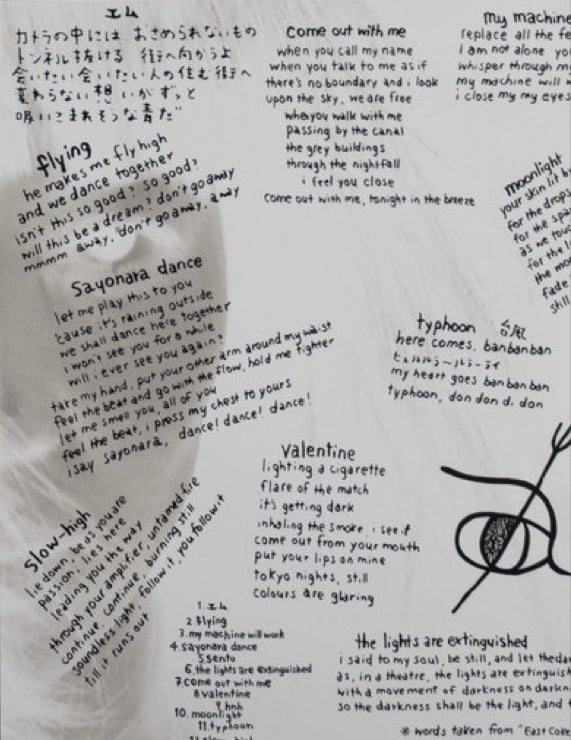 エム
カメラの中には おさめられないもの
トンネル抜ける 街へ向かうよ
会いたい会いたい人の住む街へ
変わらない想いがずっと
吸いこまれそうな青だ
come out with me
when you call my name
when you talk to me as if
there's no boundary and i look
upon the sky, we are free
when you walk with me
passing by the canal
the grey buildings
through the nightfall
i feel you close
come out with me, tonight in the breeze
my machine
replace all the
I am not alone
whisper through
my machine will
i close my my eyes
flying
he makes me fly high
and we dance together
isn't this so good? so good?
will this be a dream? don't go away
mmmm away, don't go away, away
moonlight
your skin lit
for the drops
for the
as we
for the
the
fade
still
Sayonara dance
let me play this to you
'cause it's raining outside
we shall dance here together
i won't see you for a while
will i ever see you again?
take my hand, put your other arm around my waist
feel the beat and go with the flow, hold me tighter
let me smell you, all of you
feel the beat, i press my chest to yours
i say sayonara, dance! dance! dance!
typhoon 台風
here comes. banbanban
ヒュルルラールラーライ
my heart goes banbanban
typhoon, don don d. don
Valentine
lighting a cigarette
flare of the match
it's getting dark
inhaling the smoke i see it
come out from your mouth
put your lips on mine
tokyo nights, still
colours are glaring
slow-high
lie down, be as you are
passion, lies here
leading you the way
through your amplifier, untamed fire
continue, continue, burning still
soundless light, follow it, you follow it
till it runs out
1. エム
2. flying
3. my machine will work
4. sayonara dance
5. sento
6. the lights are extinguished
7. come out with me
8. valentine
9. hnh
10. moonlight
11. typhoon
the lights are extinguished
i said to my soul, be still, and let the
as, in a theatre, the lights are
with a movement of darkness on
so the darkness shall be the light, and
* words taken from "East